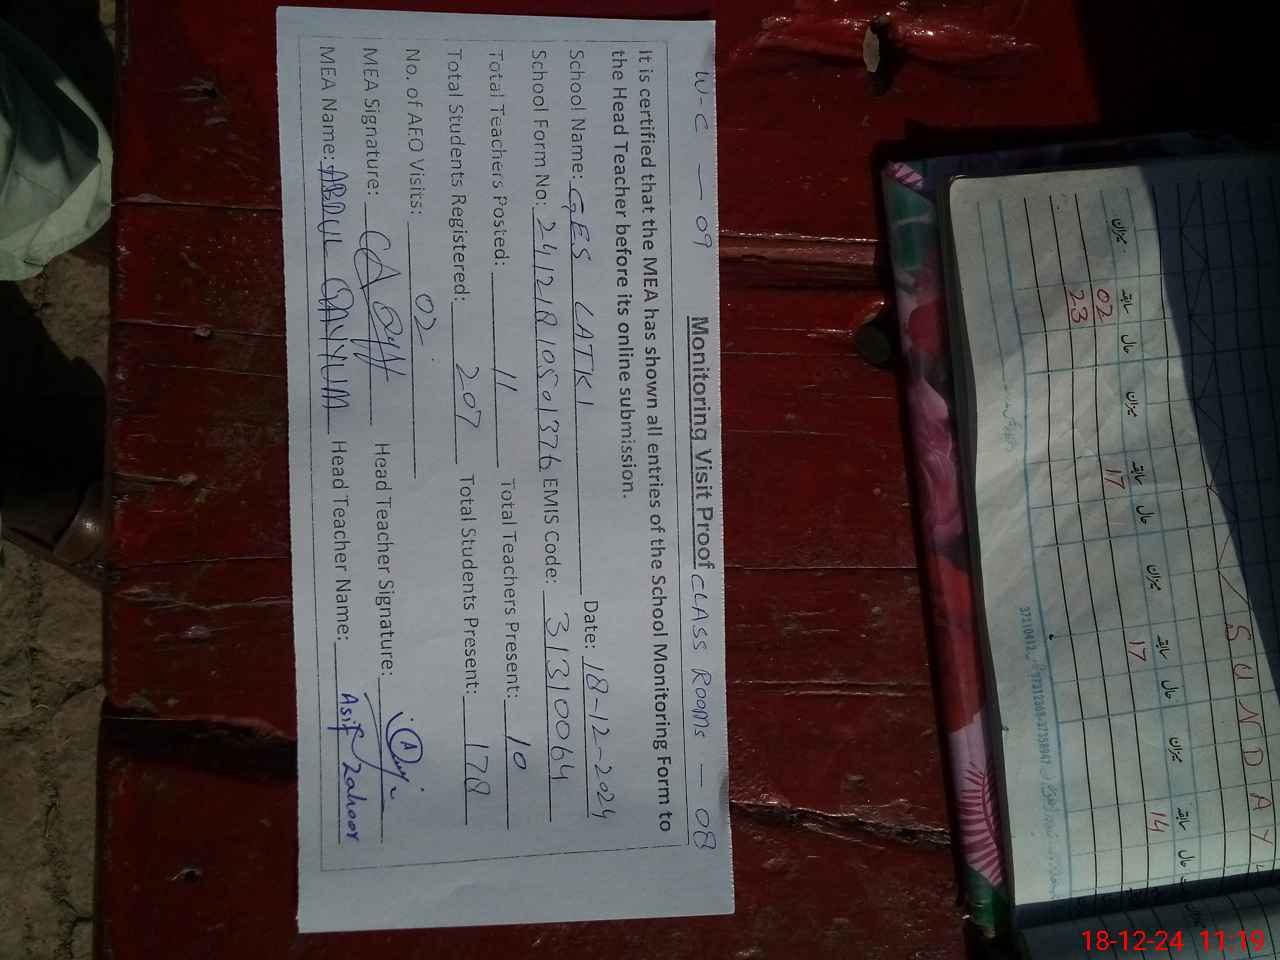 W-C — 09
CLASS ROOMS — 08
Monitoring Visit Proof
It is certified that the MEA has shown all entries of the School Monitoring Form to
the Head Teacher before its online submission.
School Name: GES LATKI Date: 18-12-2024
School Form No: 24121810501376 EMIS Code: 31310064
Total Teachers Posted: 11 Total Teachers Present: 10
Total Students Registered: 207 Total Students Present: 178
No. of AEO Visits: 02
MEA Signature: Head Teacher Signature:
MEA Name: ABDUL QAYYUM Head Teacher Name: Asif Zahoor
SUNDAY
میزان سابقہ حال میزان سابقہ حال میزان سابقہ حال میزان سابقہ حال
02 17 17 14
23
18-12-24 11:19